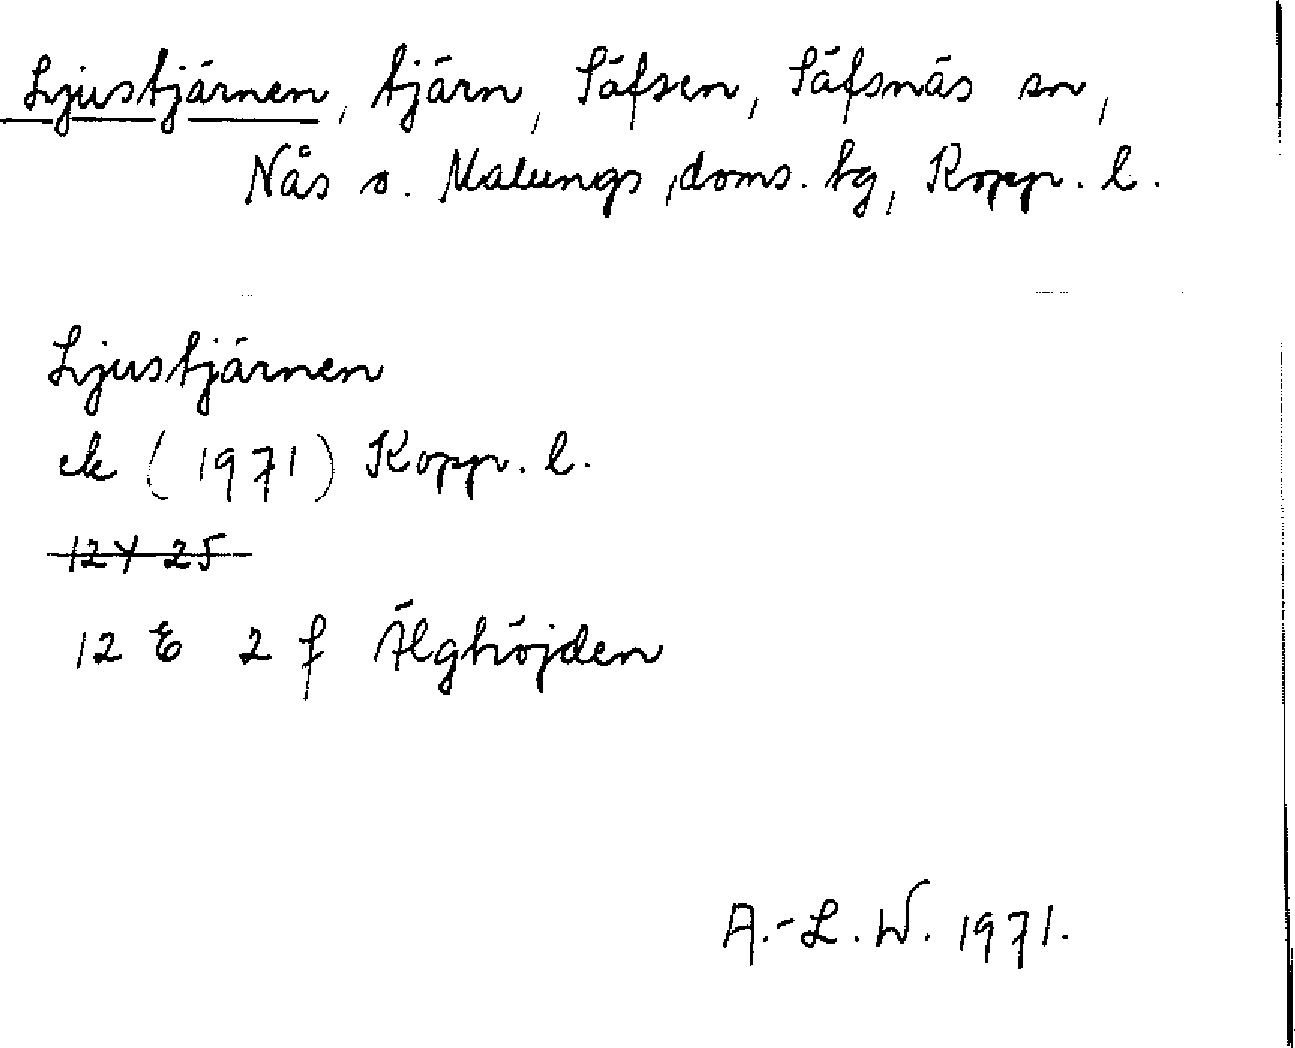 Ljustjärnen, tjärn, Säfsen, Säfsnäs sn,
Nås o. Malungs doms. tg, Kopp. l.
Ljustjärnen
ek (1971) Kopp. l.
12Y 25
12 E 2 f Älghöjden
A.-L. W. 1971.